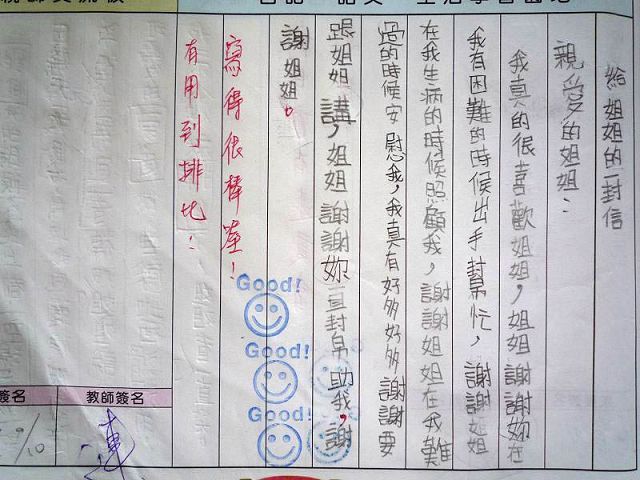 給姐姐的一封信
親愛的姐姐：
我真的很喜歡姐姐，姐姐謝謝妳在
我有困難的時候出手幫忙，謝謝姐姐
在我生病的時候照顧我，謝謝姐姐在我難
過的時候安慰我，我真有好多好多謝謝要
跟姐姐講，姐姐謝謝妳一直封帛助我，謝
謝姐姐。
寫得很棒
有用到排比！
Good!
Good!
Good!
教師簽名
簽名